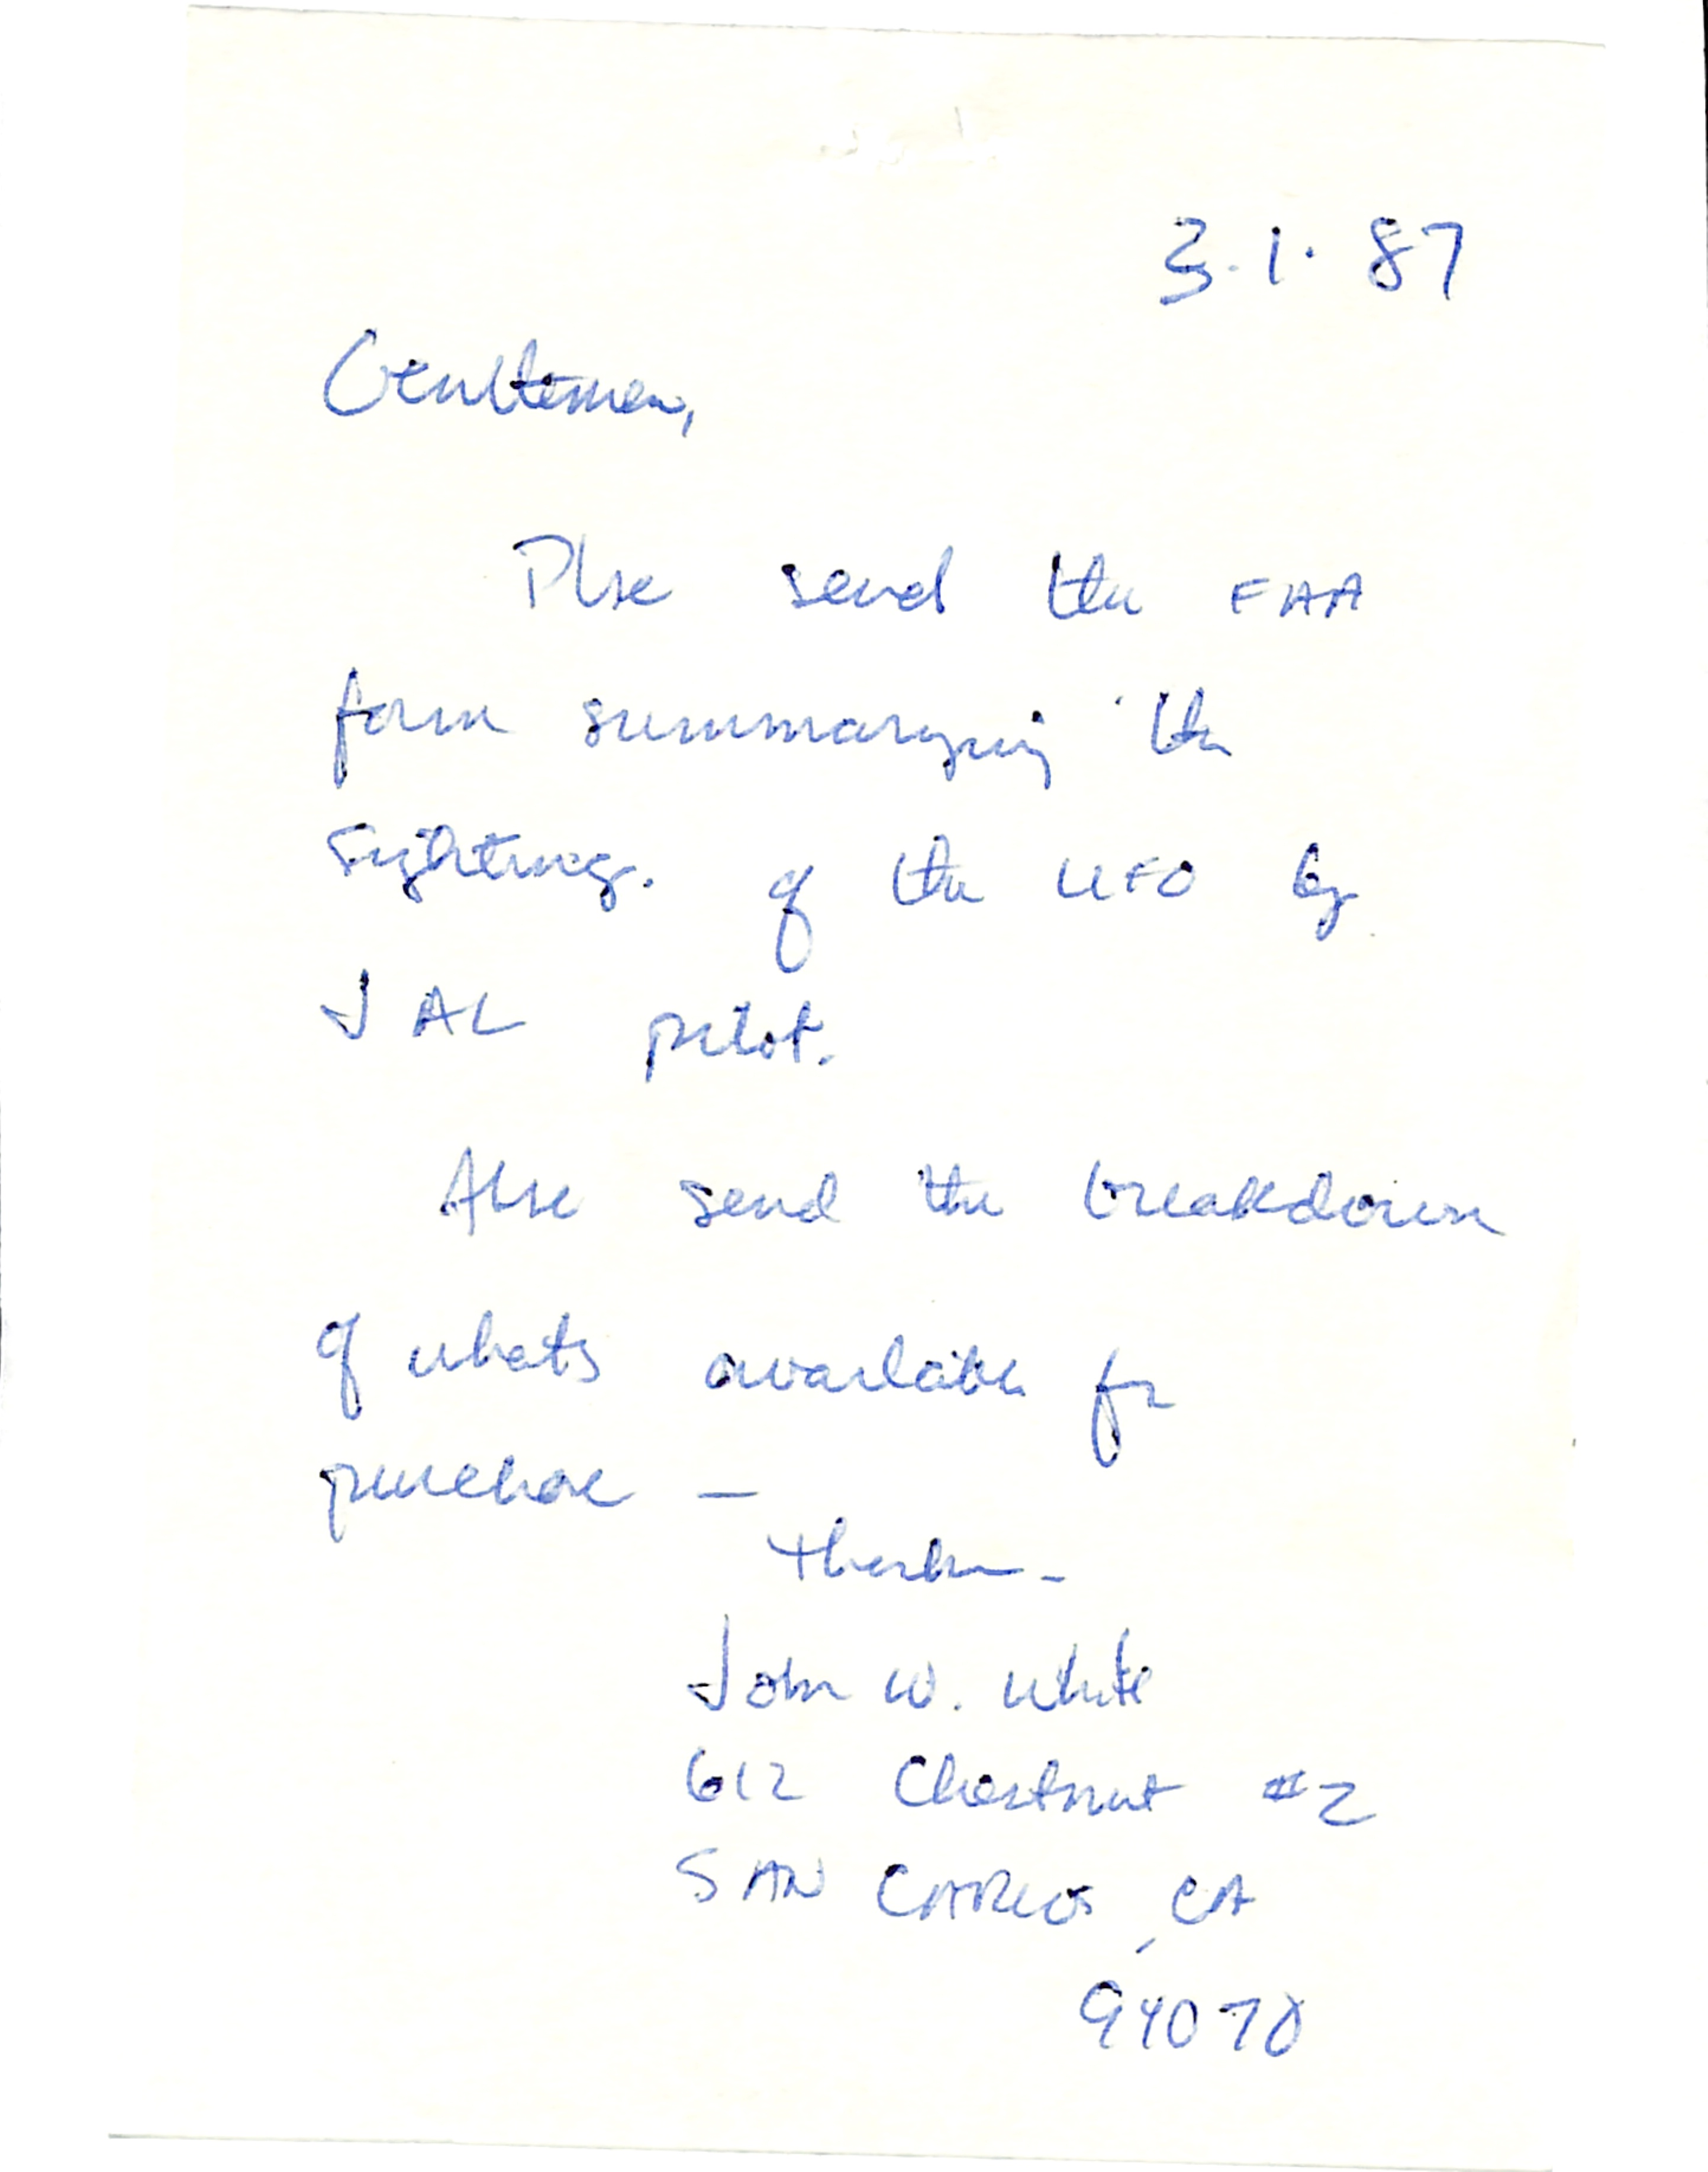 3.1.87
Gentlemen,
Plse send the FAA
form summarizing the
sightings. of the UFO by
JAL pilot.
Also send the breakdown
of whats available for
purchase —
Thanks -
John W. White
612 Chestnut #2
SAN CARLOS, CA
94070